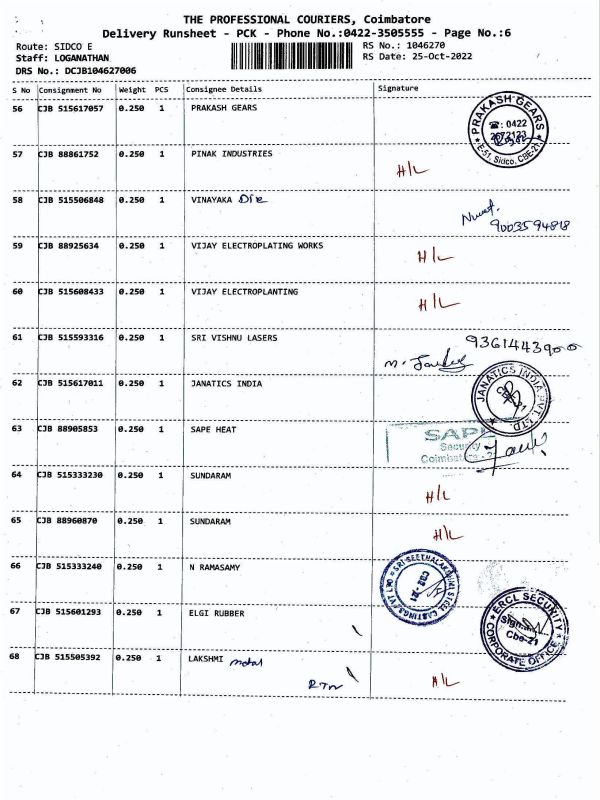 THE PROFESSIONAL COURIERS, Coimbatore
Delivery Runsheet - PCK - Phone No.:0422-3505555 - Page No.:6
Route: SIDCO E
RS No.: 1046270
Staff: LOGANATHAN
RS Date: 25-Oct-2022
DRS No.: DCJB104627006
S No Consignment No Weight PCS Consignee Details Signature
56 CJB 515617057 0.250 1 PRAKASH GEARS
PRAKASH GEARS
☎: 0422
E-51, Sidco, CBE-21.
57 CJB 88861752 0.250 1 PINAK INDUSTRIES H/L
58 CJB 515506848 0.250 1 VINAYAKA Die
9003594818
59 CJB 88925634 0.250 1 VIJAY ELECTROPLATING WORKS H/L
60 CJB 515608433 0.250 1 VIJAY ELECTROPLANTING H/L
61 CJB 515593316 0.250 1 SRI VISHNU LASERS 9361443900
62 CJB 515617011 0.250 1 JANATICS INDIA
JANATICS INDIA PVT. LTD.
63 CJB 88905853 0.250 1 SAPE HEAT
SAPE
Security
64 CJB 515333230 0.250 1 SUNDARAM H/L
65 CJB 88960870 0.250 1 SUNDARAM H/L
66 CJB 515333240 0.250 1 N RAMASAMY
67 CJB 515601293 0.250 1 ELGI RUBBER
ERCL SECURITY
Cbe-21
CORPORATE OFFICE
68 CJB 515505392 0.250 1 LAKSHMI metal H/L
RTN